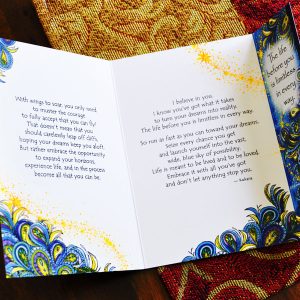 With wings to soar, you only need
to muster the courage
to fully accept that you can fly!
That doesn't mean that you
should carelessly leap off cliffs,
hoping your dreams keep you aloft,
but rather embrace the opportunity
to expand your horizons,
experience life, and in the process
become all that you can be.
I believe in you.
I know you've got what it takes
to turn your dreams into reality.
The life before you is limitless in every way.
So run as fast as you can toward your dreams,
seize every chance you get
and launch yourself into the vast,
wide, blue sky of possibility.
Life is meant to be lived and to be loved.
Embrace it with all you've got
and don't let anything stop you.
— Suzy
The life
before you
is limitless
in every
way.